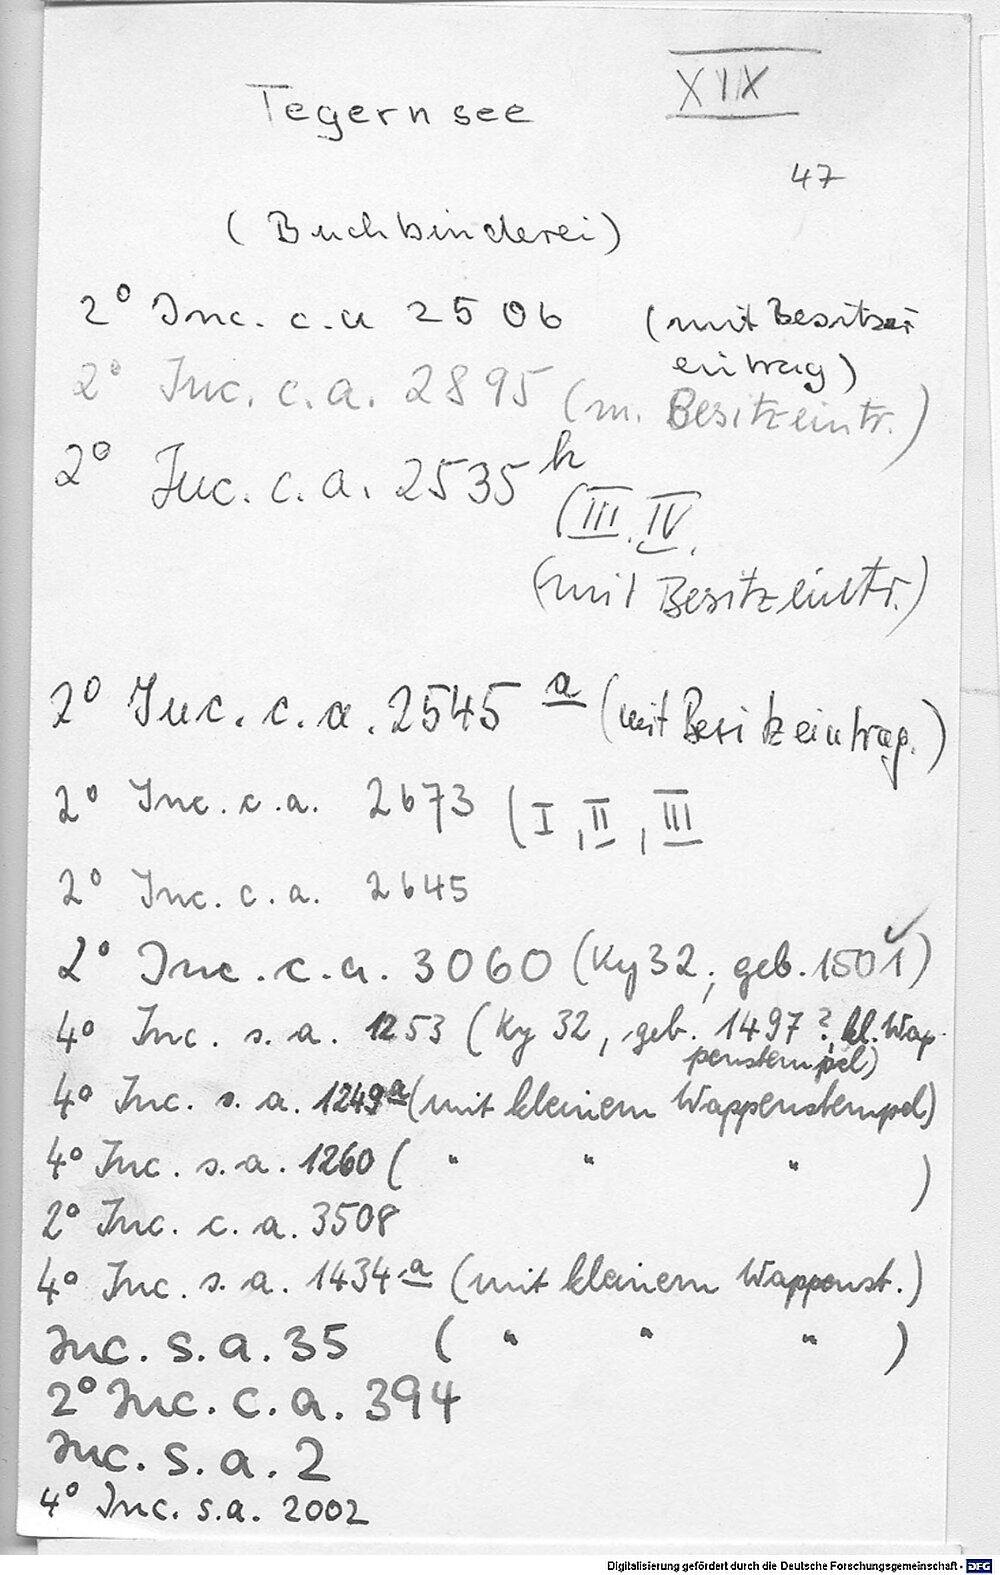 XIX
Tegernsee
47
(Buchbinderei)
2° Inc. c.a 2506 (mit Besitzer
eintrag)
2° Inc. c.a. 2895 (m. Besitzeintr.)
2° Inc. c.a. 2535 h
(III. IV.
(mit Besitzeintr.)
2° Inc. c.a. 2545 a (mit Besitzeintrag.)
2° Inc. c.a. 2673 (I, II, III
2° Inc. c.a. 2645
2° Inc. c.a. 3060 (Ky 32, geb. 1501)
4° Inc. s.a. 1253 (Ky 32, geb. 1497?, kl. Wap-
penstempel)
4° Inc. s.a. 1249 a (mit kleinem Wappenstempel)
4° Inc. s.a. 1260 ( " " " )
2° Inc. c.a. 3508
4° Inc. s.a. 1434 a (mit kleinem Wappenst.)
Inc. s.a. 35 ( " " " )
2° Inc. c.a. 394
Inc. s.a. 2
4° Inc. s.a. 2002
Digitalisierung gefördert durch die Deutsche Forschungsgemeinschaft - DFG